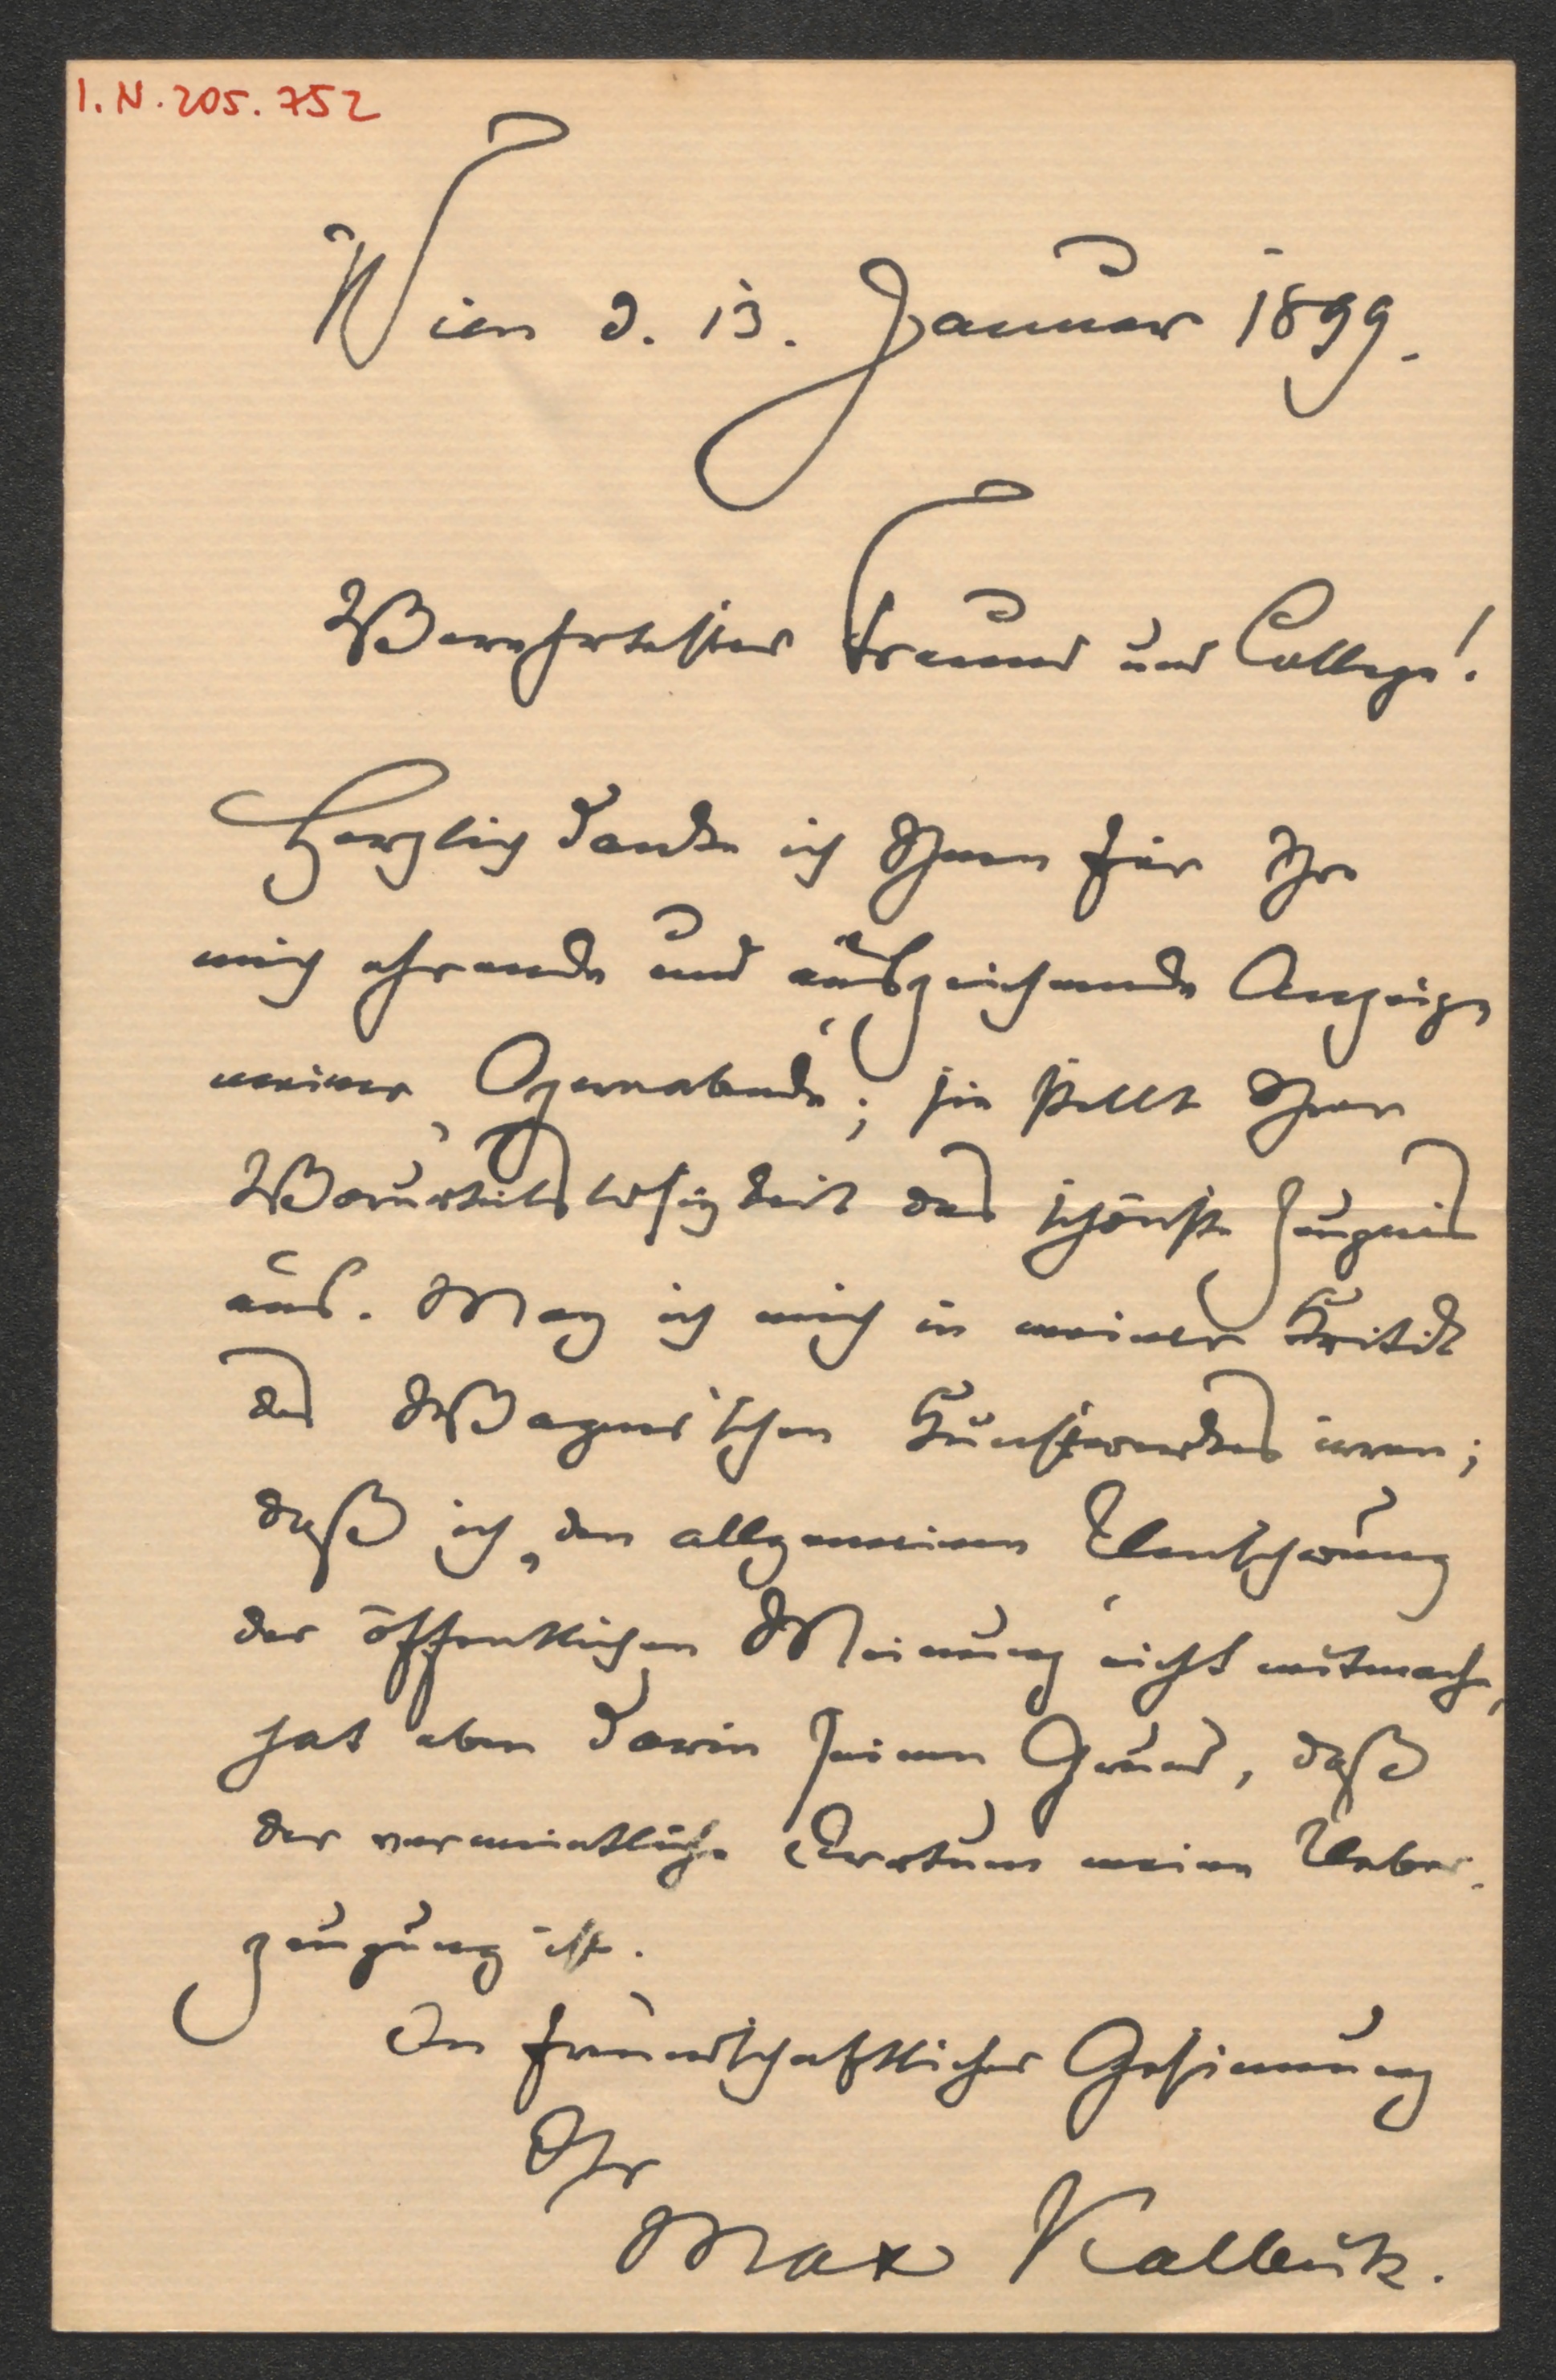 I.N. 205.752
Wien d. 13. Januar 1899.
Verehrtester Freund und College!
Herzlich danke ich Ihnen für Ihre
mich ehrende und auszeichnende Anzeige
meiner „Opernabende“; sie stellt Ihrer
Vorurteilslosigkeit das schönste Zeugnis
aus. Mag ich mich in meiner Kritik
des Wagner'schen Kunstwerkes irren;
daß ich „den allgemeinen Umschwung
der öffentlichen Meinung“ nicht mitmache,
hat eben darin seinen Grund, daß
der vermeintliche Irrtum meine Ueber-
zeugung ist.
In freundschaftlicher Gesinnung
Ihr
Max Kalbeck.